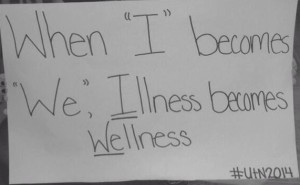 When "I" becomes
"We", Illness becomes
Wellness
#UHN2014